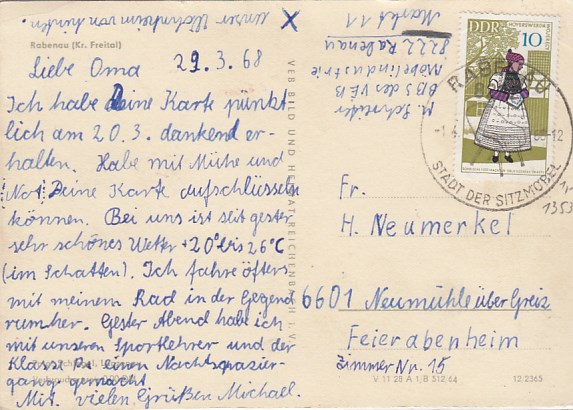 Unser Wochenheim von hinten. X
Rabenau (Kr. Freital)
Liebe Oma 29.3.68
Ich habe Deine Karte pünkt
lich am 20.3. dankend er-
halten. Habe mit Mühe und
Not Deine Karte aufschlüsseln
können. Bei uns ist seit gester
sehr schönes Wetter +20° bis 26°C
(im Schatten). Ich fahre öfters
mit meinem Rad in der Gegend
rumher. Gester Abend habe ich
mit unseren Sportlehrer und der
Klasse 7a einen Nachtspazier-
gang gemacht
Mit vielen Grüßen Michael.
VEB BILD UND HEIMAT REICHENBACH I. V.
M. Schneider
BBS des VEB
Möbelindustrie
8222 Rabenau
Markt 11
DDR
10
RABENAU
STADT DER SITZMÖBEL
Fr.
H. Neumerkel
6601 Neumühle über Greiz
Feierabenheim
Zimmer Nr. 15
V 11 28 A 1, B 512, 64 12 2365